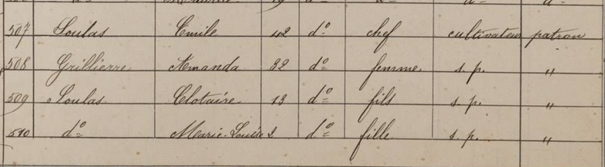 507 Soulas Emile 42 do chef cultivateur patron
508 Grillierre Amanda 32 do femme s.p. "
509 Soulas Clotaire 13 do fils s.p. "
510 do Marie-Louise 2 do fille s.p. "